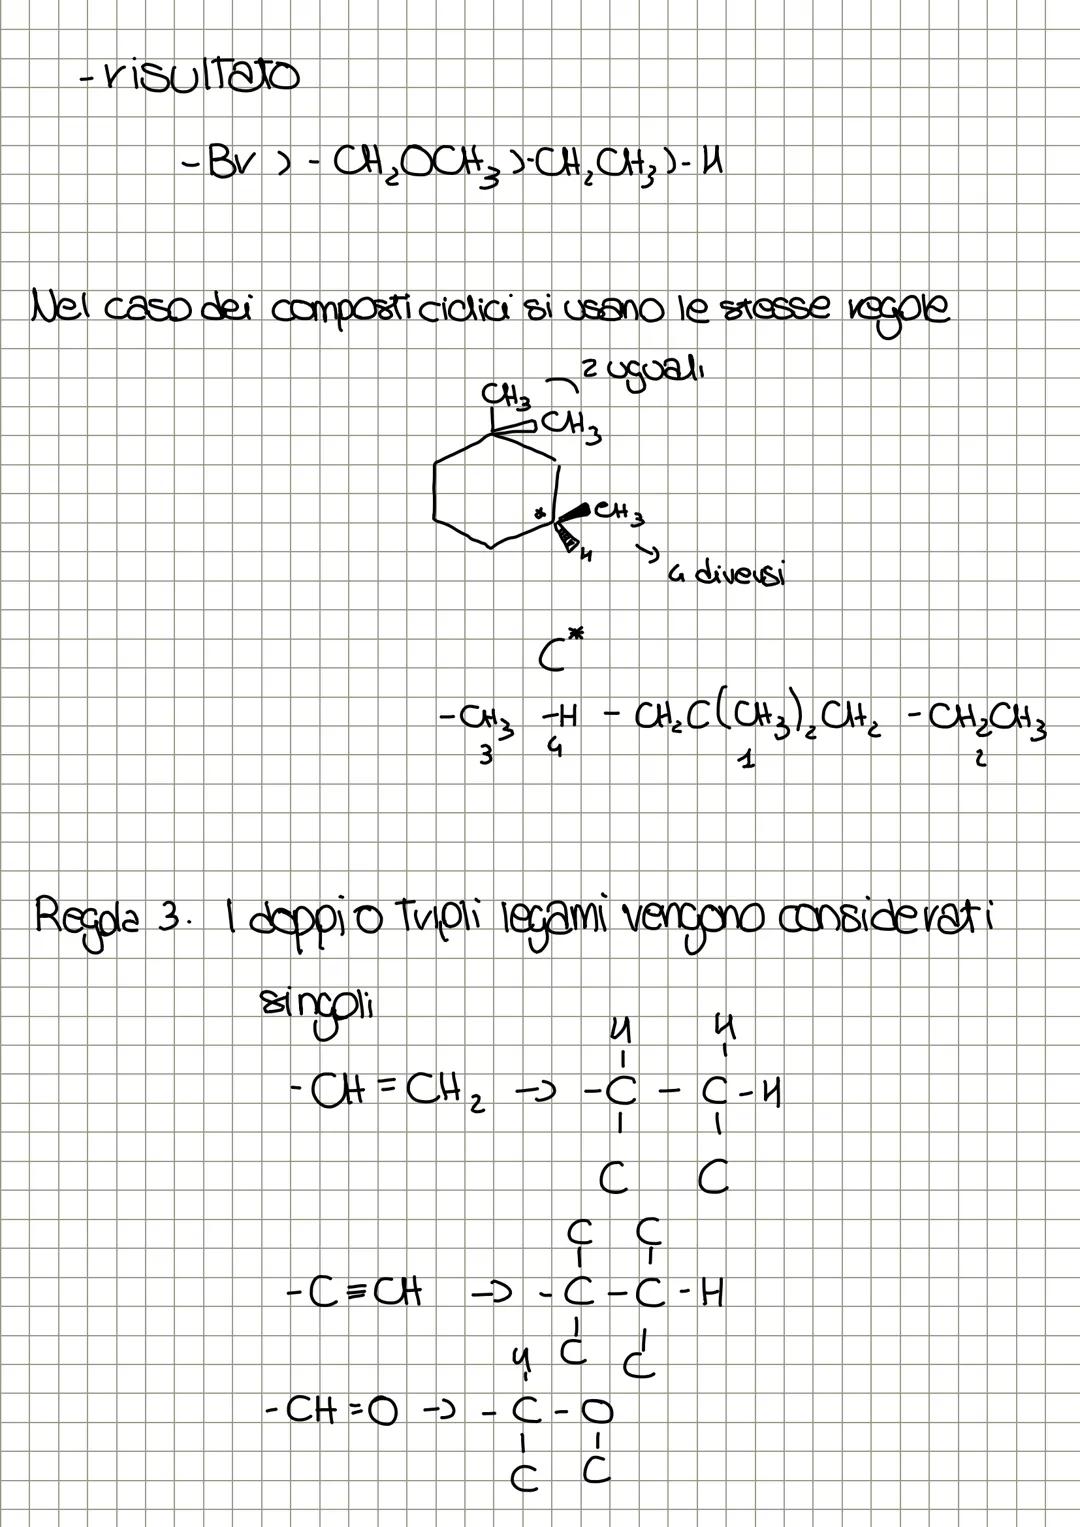 -risultato
-Br > - CH₂OCH₃ > -CH₂CH₃ > - H
Nel caso dei composti ciclici si usano le stesse regole
2 uguali
CH₃
CH₃
* CH₃
H
4 diversi
C*
-CH₃ -H - CH₂C(CH₃)₂CH₂ -CH₂CH₃
3 4 1 2
Regola 3. I doppi o tripli legami vengono considerati
singoli
H H
-CH=CH₂ → -C - C-H
C C
C C
-C≡CH → -C-C-H
C C
H
-CH=O → -C-O
C C